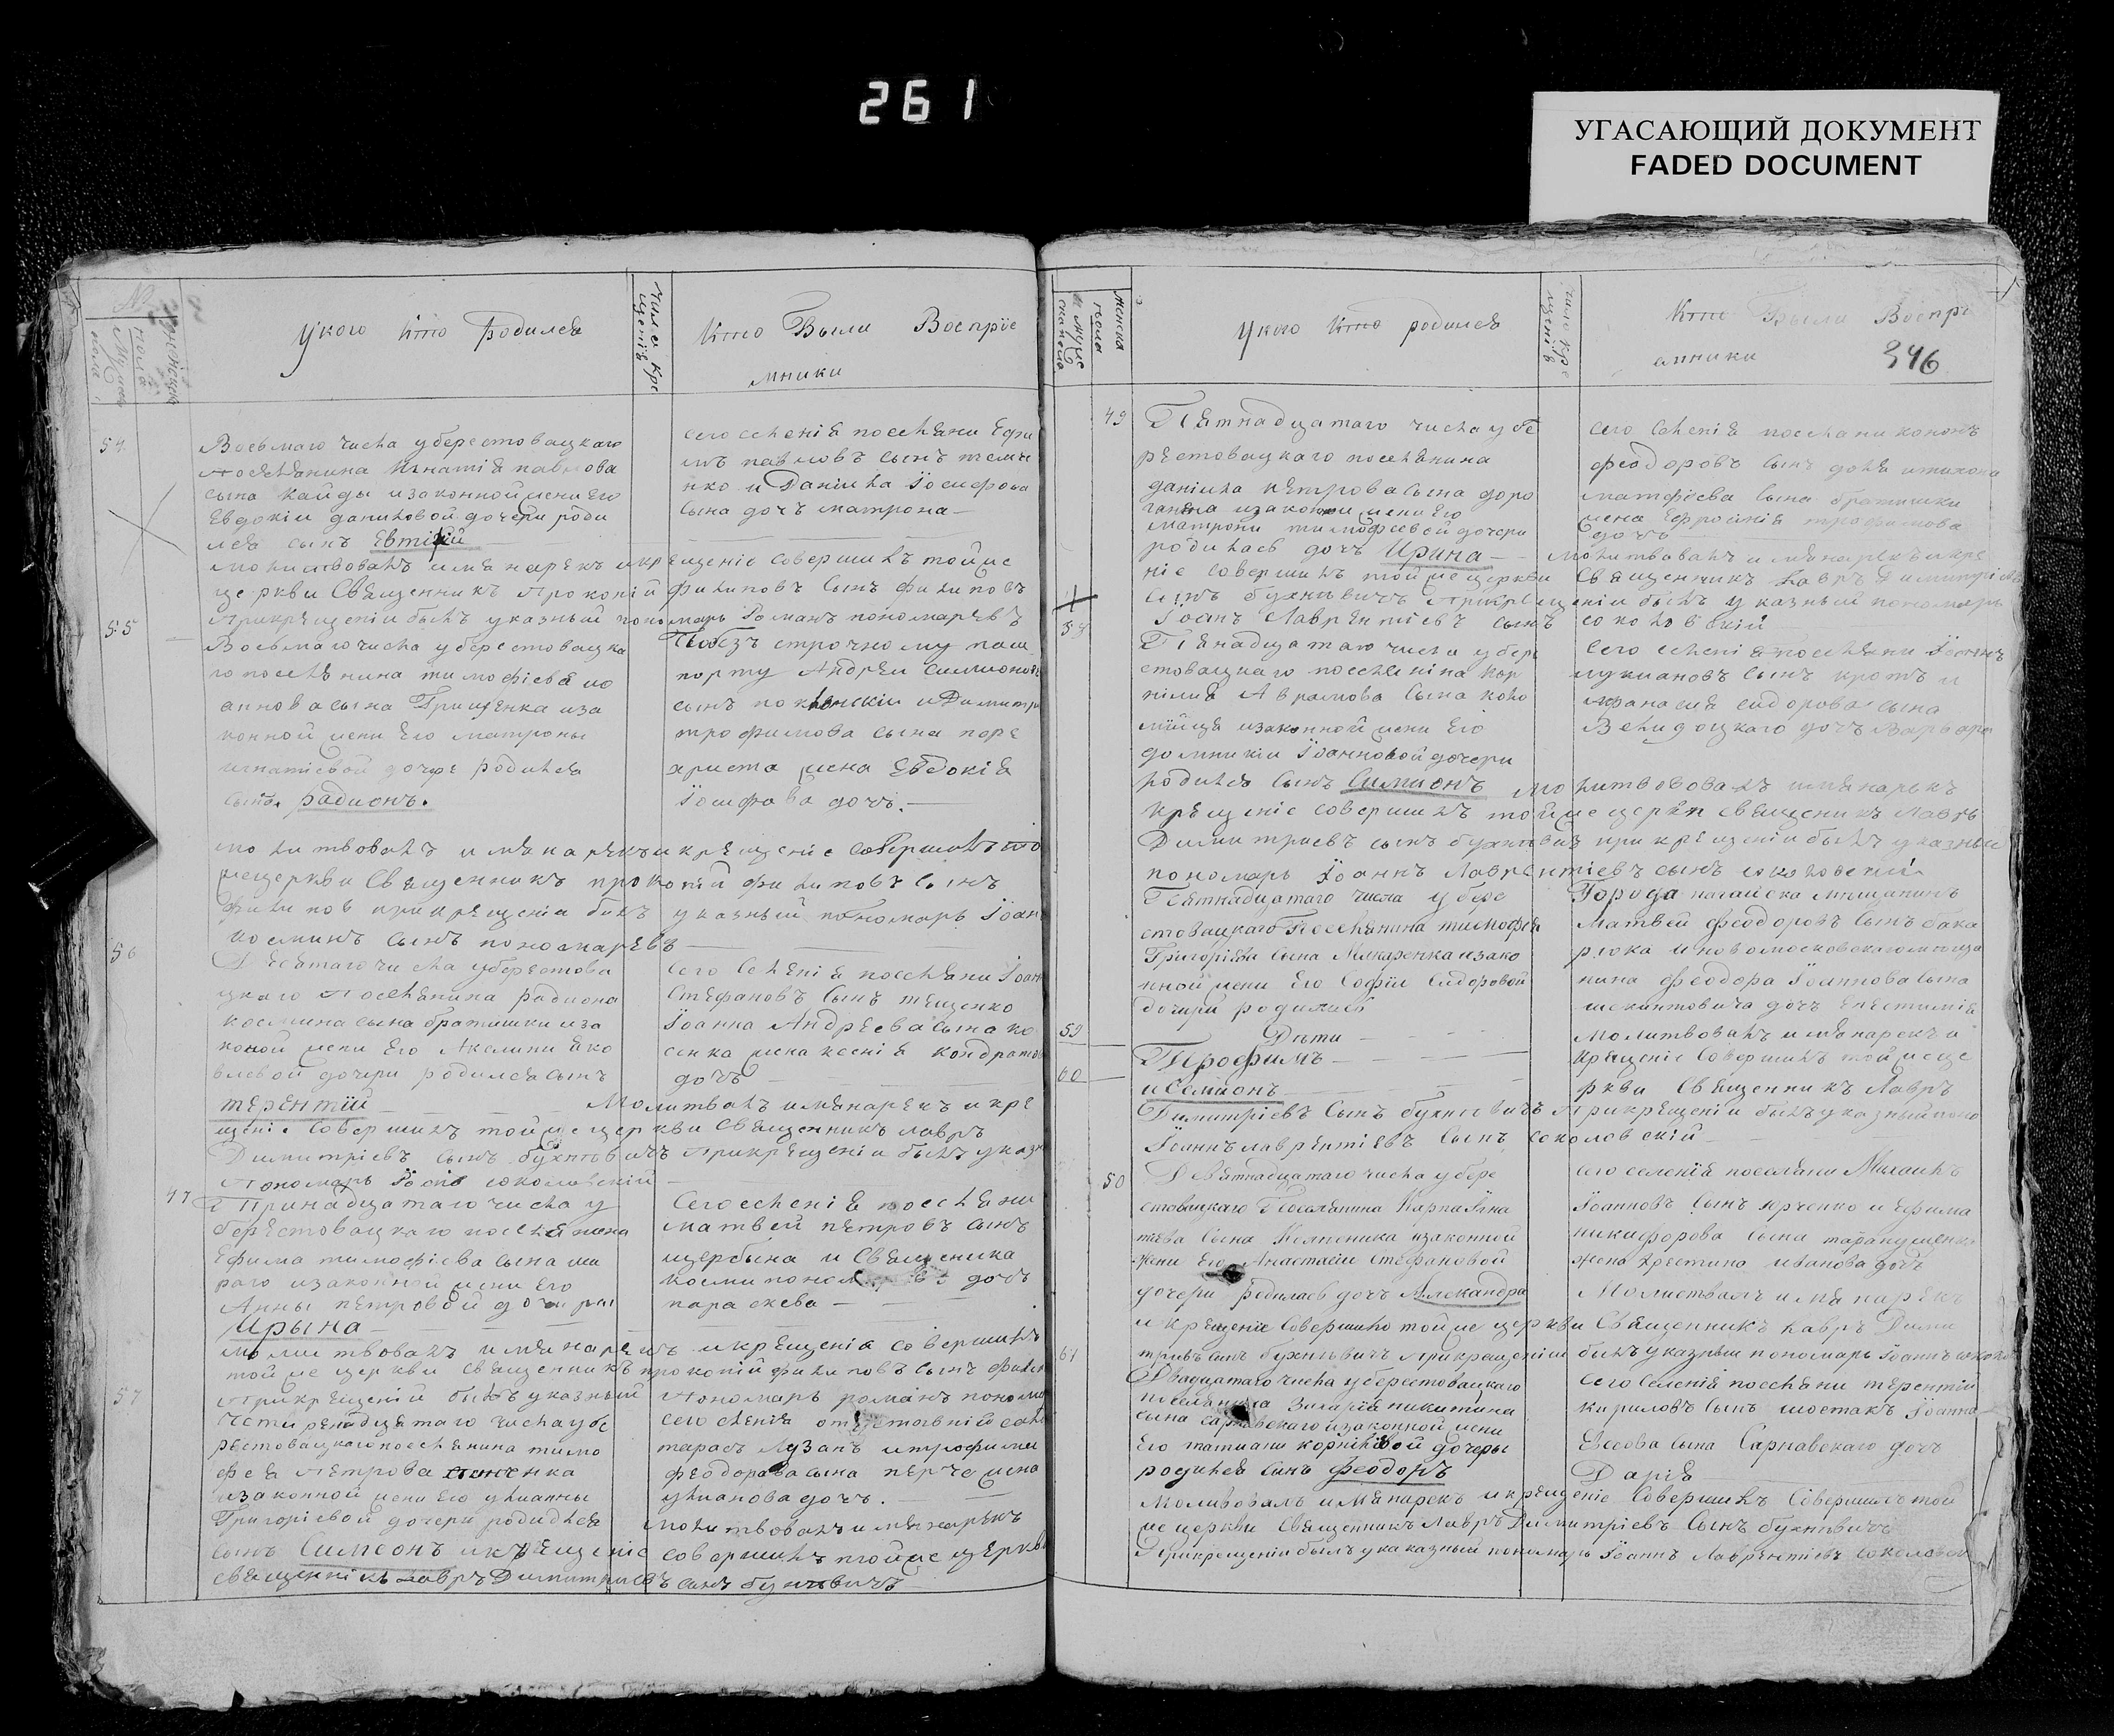 261
УГАСАЮЩИЙ ДОКУМЕНТ
FADED DOCUMENT
№
У кого кто родился
Число кре
щенія
Кто Были Воспріе
мники
54
Восьмаго числа у берестовацкаго
поселянина Игнатія павлова
сына кайды изаконной жени его
Евдокіи даниловой дочери роди
лся сынъ Евтіхій
сего селенія поселяни Ефи
мъ павловъ сынъ
нко и Даніила Іосифова
сына дочъ матрона
молитвовалъ имя нарекъ икрещеніе совершилъ тойже
церкви Священникъ Прокопій филиповъ сынъ филиповъ
прикрещеніи былъ указный пономарь Романъ пономаревъ
55
Восьмаго числа у берестовацка
го поселянина тимофіевя ио
аннова сына Грищенка иза
конной жени его матроны
игнатіевой дочре родился
сынъ радионъ.
строчному паш
порту Андрей симионовъ
сынъ и Димитр
трофимова сына
христа жена Евдокія
Іосифова дочъ.
молитвовалъ имя нарекъ икрещеніе совершилъ той
жецеркви Священникъ прокопій филиповъ сынъ
филипов прикрещеніи былъ указный пономарь Іоан
косминъ сынъ пономаревъ
56
Десятаго числа у берестова
цкаго поселянина радиона
космина сына братишки иза
коной жени его Акелини яко
влевой дочери родился сынъ
терентій
сего селенія поселяни Іоан
Стефановъ сынъ тещенко
Іоанна Андреева сына ко
сенка жена ксенія кондратов
дочъ
Молитвалъ имянарекъ и кре
щеніе совершилъ тойже церкви Священникъ лавръ
Димитріевъ сынъ бухнтовичъ прикрещеніи былъ указн
пономарь Іоанъ соколовскій
47
Тринадцатаго числа у
берестовацкаго поселянина
Ефима тимофіева сына ма
раго изаконной жени его
Анны петровой дочери
Ирына
Сего селенія поселяни
матвей петровъ сынъ
щербына и Священика
косми дочъ
параскева
молитвовалъ имянарекъ икрещеніе совершилъ
тойже церкви священникъ прокопій филиповъ сынъ филип
прикрещеній былъ указный пономарь романъ пономар
57
Четиренадцятаго числа у бе
рестовацкаго поселянина тимо
фея петрова
изаконной жени его улианны
Григоріевой дочери родидлся
сынъ Симеонъ икрещеніе
сего сленія
тарасъ Лузанъ и трофима
феодорава сына жена
улианова дочъ.
молитвовалъ имянарекъ
совершилъ тойже церкви
священникъ лавръ Димитриевъ сынъ бухнтовичъ
У кого Кто родился
Кто Были Воспрі
емники
346
49
Пятнадцатаго числа у бе
рестовацкаго поселянина
даніила петрова сына доро
ганяна изаконой жени его
матрони тимофеевой дочери
родилась дочъ Ирина
сего селенія поселани кононъ
феодоровъ сынъ доля итихона
матфіева сына братишки
жена Ефросінія трофимова
дочъ
молитвовалъ имянарекъ икре
ніе совершилъ тойжецеркви Священникъ Лавръ Димитріевъ
сынъ бухнтовичъ прикрещеніи былъ указный пономарь
Іоанъ Лаврентіевъ сынъ соколовскій
58
Пянадцатаго числа у бере
стовацкаго поселенина Кор
нілия Аврамова сына коло
мійця изаконной жени его
домникіи Іоанновой дочери
родился сынъ Симионъ
сего селенія поселяни Іосифъ
лукиановъ сынъ кротъ и
Афанасия сидорова сына
Велидоцкаго дочъ варвара
молитвововалъ имянарекъ
крещеніе совершилъ тойже церкви священикъ Лавръ
Димитриевъ сынъ бухнтовичъ при крещеніи былъ указный
пономарь Іоаннъ Лаврентіевъ сынъ соколовскій
Пятнадцатаго числа у бере
стовацкаго Поселянина тимофея
Григоріева сына Макаренка изако
нной жени его Софіи Сидоровой
дочери родились
Дѣти
59
Трофимъ
60
и Семионъ
Города нагайска мещанинъ
Матвей феодоровъ сынъ бака
рлока и новомосковскаго меща
нина феодора Іоаннова сына
дочъ Епестимія
Молитвовалъ имянарекъ и
крещеніе совершилъ тойжеце
ркви Священникъ Лавръ
Димитріевъ сынъ бухнтовичъ прикрещеніи былъ указный поно
Іоаннъ лаврентіевъ сынъ соколовскій
50
Девятнадцатаго числа у бере
стовацкаго Поселянина Карпа Игна
тева сына Колесника изаконной
жени Его Анастасіи Стефановой
дочери родилась дочъ Александра
сего селенія поселяни Михаилъ
Іоанновъ сынъ юрченко и Ефима
никифорова сына
жена христина иванова дочъ
Молиствалъ имя нарекъ
и крещеніе совершилъ тойже церкви Священникъ лавръ Дими
тривъ сынъ бухнтовичъ прикрещеніи былъ указный пономарь Іоаннъ соколо
61
Двадцатаго числа у берестовацкаго
поселянина Захарія никитина
сына сарнавскаго изаконной жени
Его татиани корніліевой дочеры
родился сынъ Феодоръ
сего селенія поселяни терентій
кириловъ сынъ шостакъ Іоанна
сына Сарнавскаго дочъ
Дарія
моливовалъ имянарек икрещеніе совершилъ совершилъ той
же церкви Священникъ Лавръ Димитріевъ сынъ бухнтовичъ
Прикрещеніи былъ укаказный пономарь Іоаннъ Лаврентіевъ соколовскій